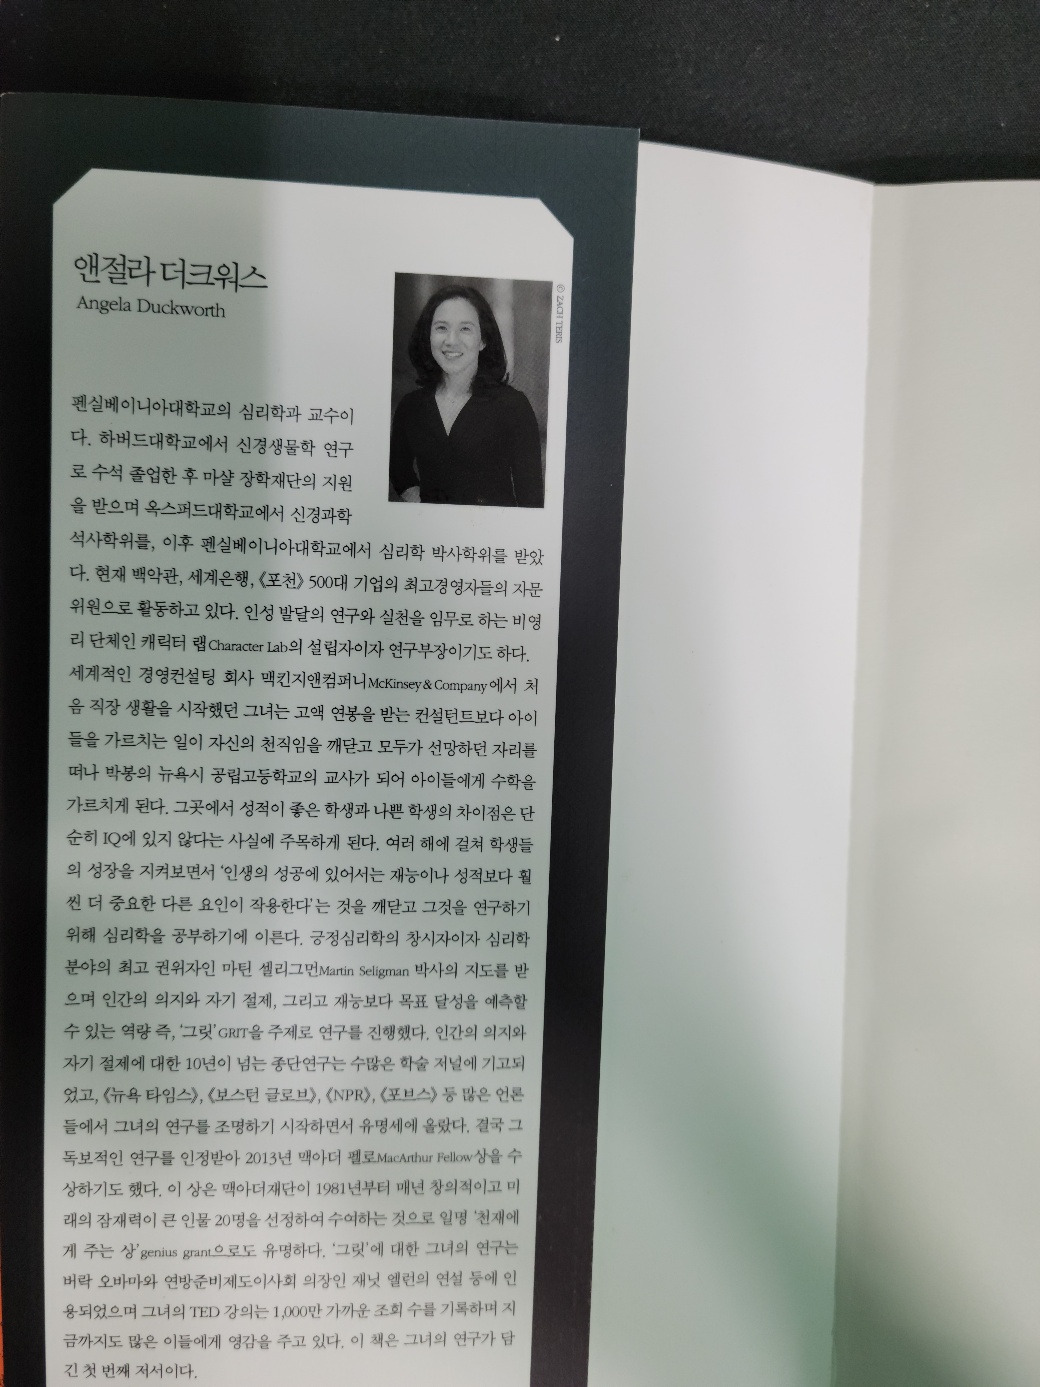 앤절라 더크워스
Angela Duckworth
© ZACH TERIS
펜실베이니아대학교의 심리학과 교수이
다. 하버드대학교에서 신경생물학 연구
로 수석 졸업한 후 마샬 장학재단의 지원
을 받으며 옥스퍼드대학교에서 신경과학
석사학위를, 이후 펜실베이니아대학교에서 심리학 박사학위를 받았
다. 현재 백악관, 세계은행, 《포천》 500대 기업의 최고경영자들의 자문
위원으로 활동하고 있다. 인성 발달의 연구와 실천을 임무로 하는 비영
리 단체인 캐릭터 랩Character Lab의 설립자이자 연구부장이기도 하다.
세계적인 경영컨설팅 회사 맥킨지앤컴퍼니McKinsey&Company에서 처
음 직장 생활을 시작했던 그녀는 고액 연봉을 받는 컨설턴트보다 아이
들을 가르치는 일이 자신의 천직임을 깨닫고 모두가 선망하던 자리를
떠나 박봉의 뉴욕시 공립고등학교의 교사가 되어 아이들에게 수학을
가르치게 된다. 그곳에서 성적이 좋은 학생과 나쁜 학생의 차이점은 단
순히 IQ에 있지 않다는 사실에 주목하게 된다. 여러 해에 걸쳐 학생들
의 성장을 지켜보면서 ‘인생의 성공에 있어서는 재능이나 성적보다 훨
씬 더 중요한 다른 요인이 작용한다’는 것을 깨닫고 그것을 연구하기
위해 심리학을 공부하기에 이른다. 긍정심리학의 창시자이자 심리학
분야의 최고 권위자인 마틴 셀리그먼Martin Seligman 박사의 지도를 받
으며 인간의 의지와 자기 절제, 그리고 재능보다 목표 달성을 예측할
수 있는 역량 즉, ‘그릿’GRIT을 주제로 연구를 진행했다. 인간의 의지와
자기 절제에 대한 10년이 넘는 종단연구는 수많은 학술 저널에 기고되
었고, 《뉴욕 타임스》, 《보스턴 글로브》, 《NPR》, 《포브스》 등 많은 언론
들에서 그녀의 연구를 조명하기 시작하면서 유명세에 올랐다. 결국 그
독보적인 연구를 인정받아 2013년 맥아더 펠로MacArthur Fellow상을 수
상하기도 했다. 이 상은 맥아더재단이 1981년부터 매년 창의적이고 미
래의 잠재력이 큰 인물 20명을 선정하여 수여하는 것으로 일명 ‘천재에
게 주는 상’genius grant으로도 유명하다. ‘그릿’에 대한 그녀의 연구는
버락 오바마와 연방준비제도이사회 의장인 재닛 옐런의 연설 등에 인
용되었으며 그녀의 TED 강의는 1,000만 가까운 조회 수를 기록하며 지
금까지도 많은 이들에게 영감을 주고 있다. 이 책은 그녀의 연구가 담
긴 첫 번째 저서이다.